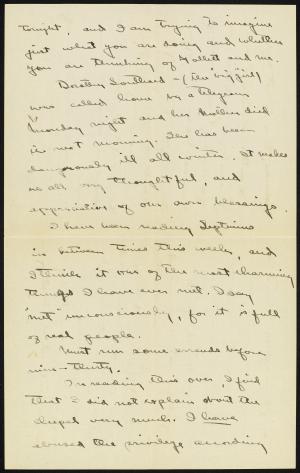 tonight, and I am trying to imagine
just what you are doing and whether
you are thinking of Hallett and me.
Dorothy Southard - (the "big girl")
was called home by a telegram
Monday night and her Mother died
next morning. She has been
dangerously ill all winter. It makes
us all very thoughtful, and
appreciative of our own blessings.
I have been reading Septimus
in between times this week, and
I think it one of the most charming
things I have ever met. I say
"met" unconsciously, for it is full
of real people.
Must run some errands before
nine-thirty.
In reading this over, I find
that I did not explain about the
chapel very much. I have
abused the privilege according